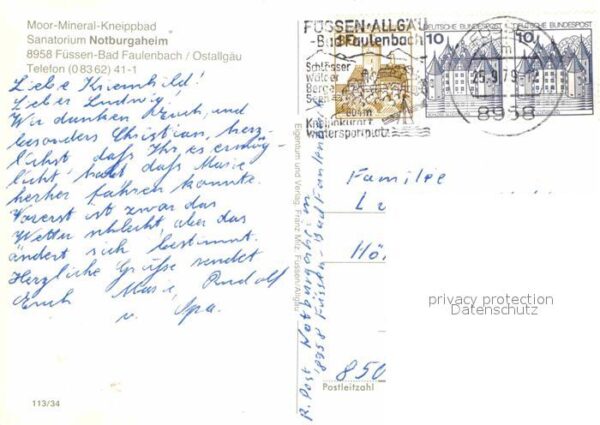 Moor-Mineral-Kneippbad
Sanatorium Notburgaheim
8958 Füssen-Bad Faulenbach / Ostallgäu
Telefon (0 83 62) 41-1
Liebe Kriemhild!
Lieber Ludwig!
Wir danken Euch, und
besonders Christian, herz-
lichst daß Ihr es ermög-
licht habt daß Marie
herher fahren konnte.
Vorerst ist zwar das
Wetter schlecht, aber das
ändert sich bestimmt.
Herzliche Grüße sendet
Euch Marie, Rudolf
u. Opa.
113/34
Eigentum und Verlag Franz Milz, Füssen/Allgäu
R. Post Notburgaheim
8958 Füssen Bad Faulenbach
FÜSSEN·ALLGÄU
-Bad Faulenbach
Schlösser
Wälder
Berge
804m
Kneippkurort
Wintersportplatz
25.9.79
8958
10
DEUTSCHE BUNDESPOST
10
DEUTSCHE BUNDESPOST
Familie
Hö
850
Postleitzahl
privacy protection
Datenschutz